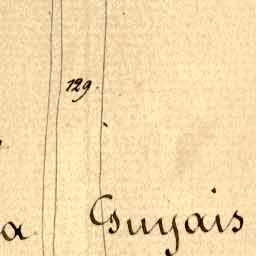 129.
a Guyais